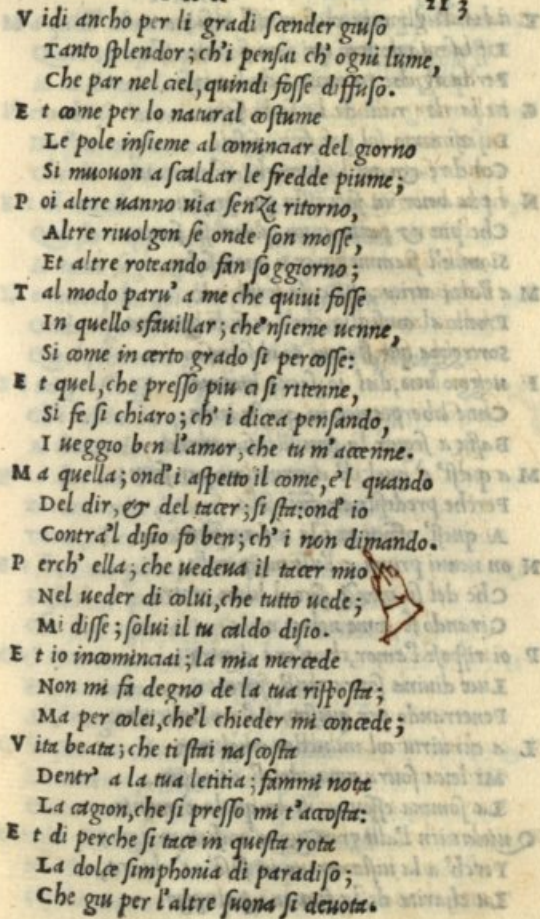 113
V idi ancho per li gradi scender giuso
Tanto splendor; ch'i pensai ch'ogni lume,
Che par nel ciel, quindi fosse diffuso.
E t come per lo natural costume
Le pole insieme al cominciar del giorno
Si muovon a scaldar le fredde piume;
P oi altre vanno via senza ritorno,
Altre rivolgon se onde son mosse,
Et altre roteando fan soggiorno;
T al modo paru' a me che quivi fosse
In quello sfavillar; che'nsieme venne,
Si come in certo grado si percosse:
E t quel, che presso piu ci si ritenne,
Si fe si chiaro; ch'i dicea pensando,
I veggio ben l'amor, che tu m'accenne.
M a quella; ond'i aspetto il come, e'l quando
Del dir, & del tacer; si sta: ond'io
Contra'l disio fo ben; ch'i non dimando.
P erch'ella; che vedeva il tacer mio
Nel veder di colui, che tutto vede;
Mi disse; solvi il tu caldo disio.
E t io incominciai; la mia mercede
Non mi fa degno de la tua risposta;
Ma per colei, che'l chieder mi concede;
V ita beata; che ti stai nascosta
Dentr' a la tua letitia; fammi nota
La cagion, che si presso mi t'accosta:
E t di perche si tace in questa rota
La dolce simphonia di paradiso;
Che giu per l'altre suona si devota.